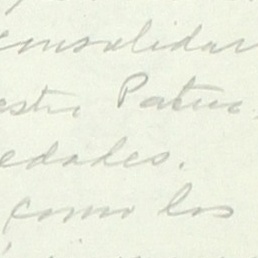 consolidar
estra Patria.
edades.
como los